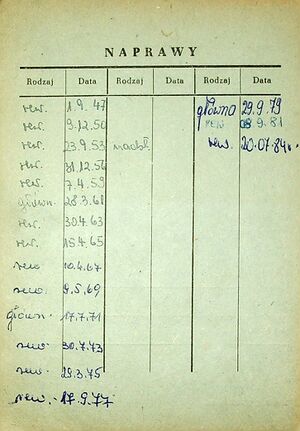 NAPRAWY
Rodzaj Data Rodzaj Data Rodzaj Data
rew. 1.9.47 główna 29.9.79
rew. 9.12.50 rew 08.9.81
rew. 23.9.53 rew. 20.07.84r.
rew. 31.12.56
rew. 7.4.59
główn. 28.3.61
rew. 30.4.63
rew. 15.4.65
rew. 10.4.67
rew. 9.5.69
główn. 17.7.71
rew 30.7.73
rew. 29.3.75
rew. - 17.9.77